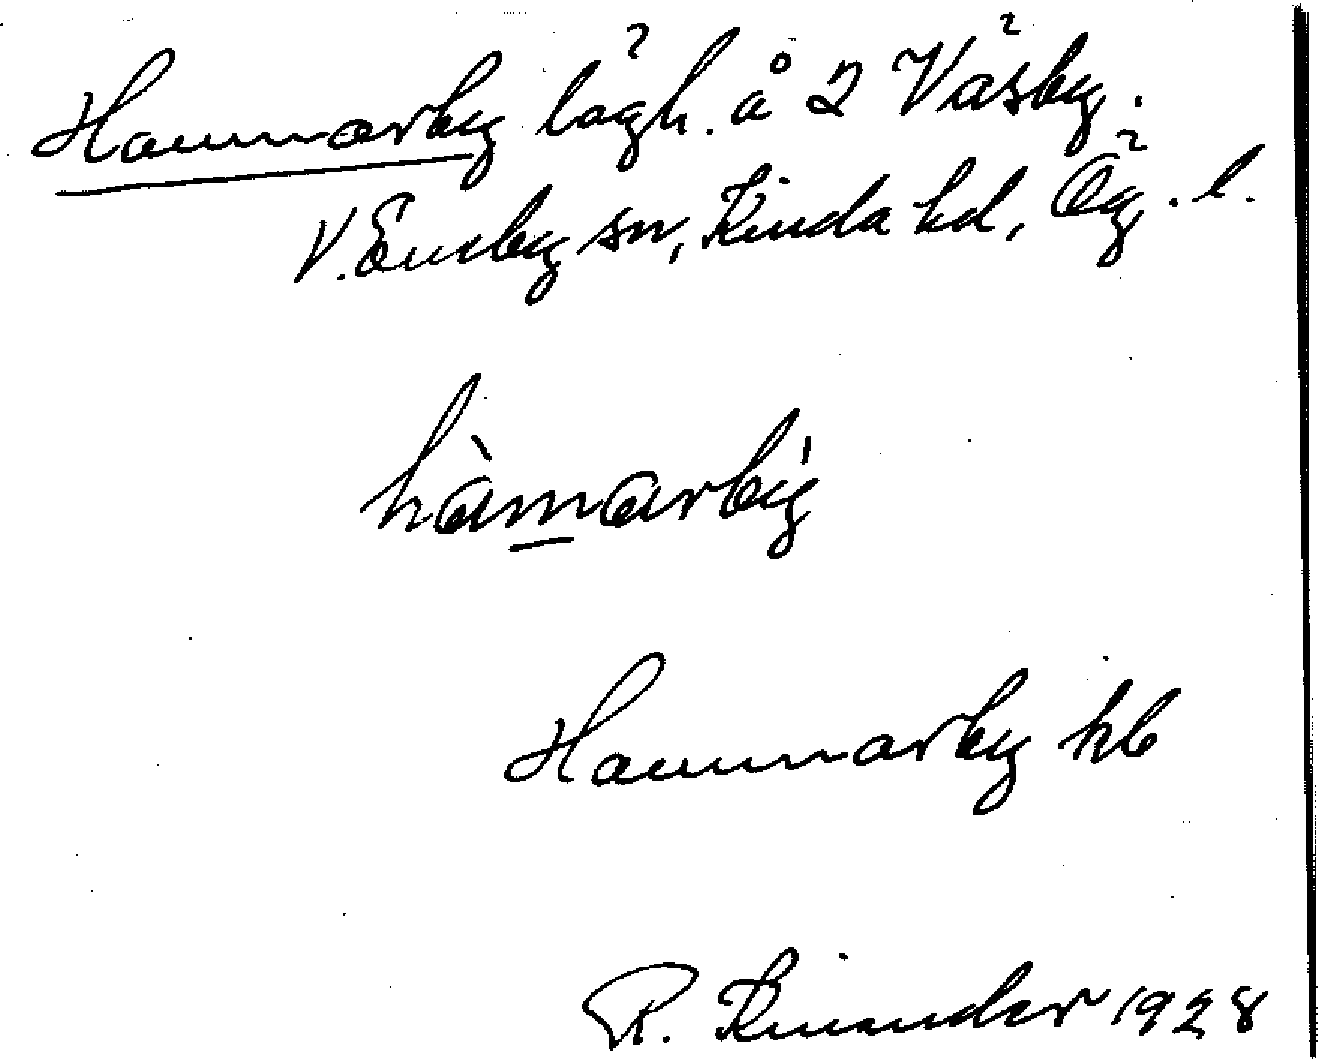 Hammarby lägh. å 2 Väsby.
V. Eneby sn, Kinda hd, Ög. l.
hàmarbẏ
Hammarby kb
R. Kinander 1928